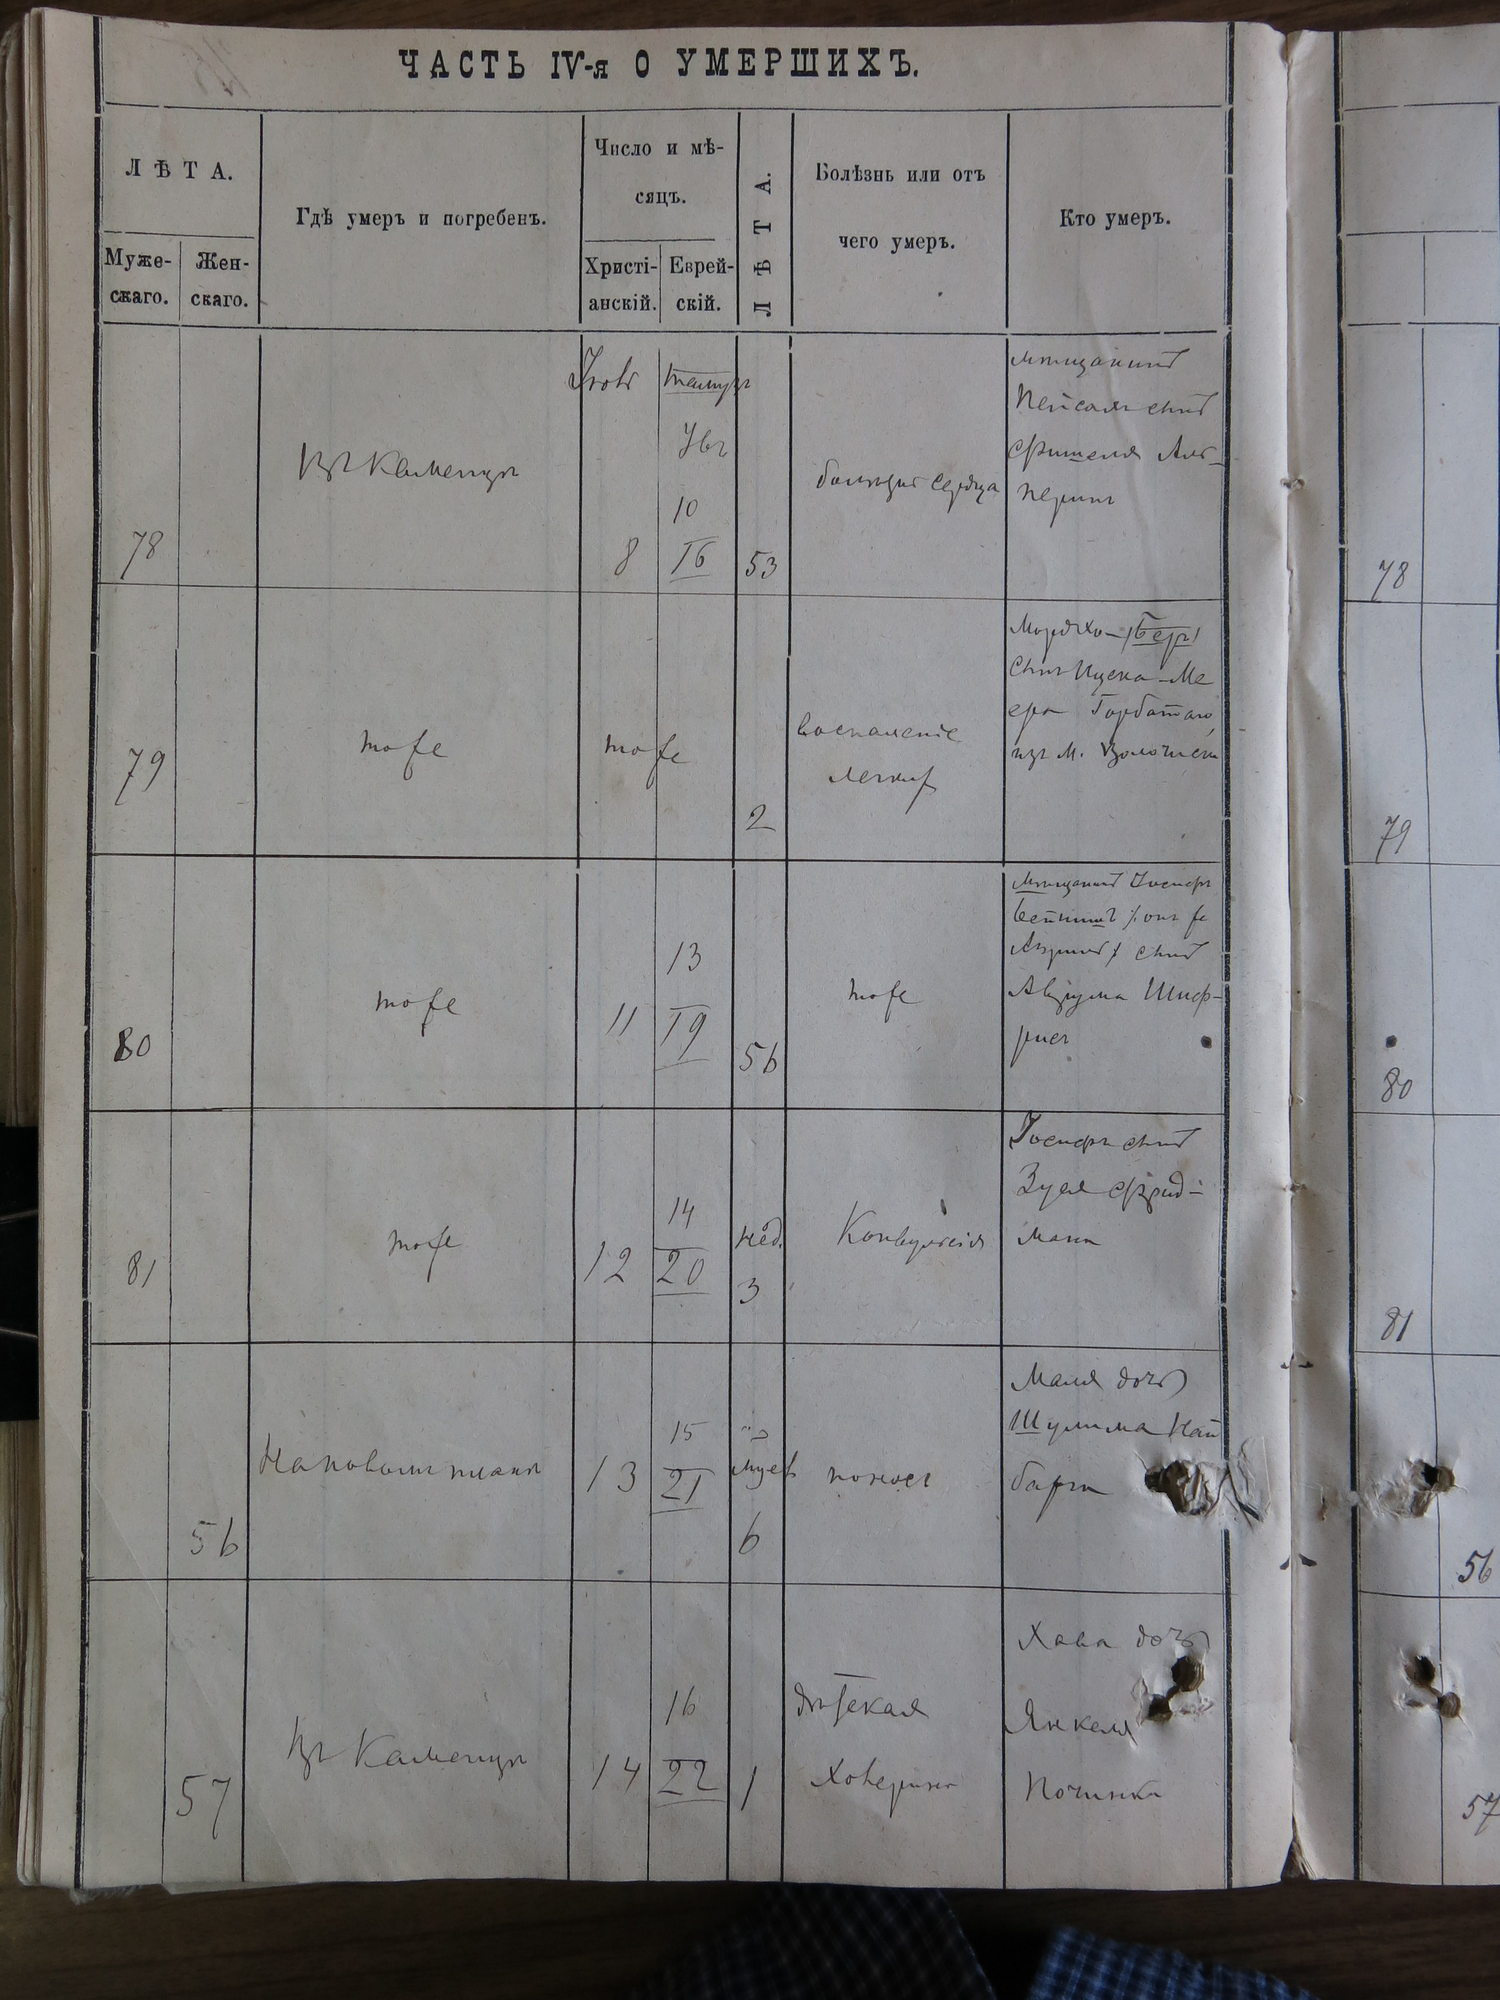 ЧАСТЬ IV-я О УМЕРШИХЪ.
ЛѢТА.
Муже-
скаго.
Жен-
скаго.
Гдѣ умеръ и погребенъ.
Число и мѣ-
сяцъ.
Христі-
анскій.
Еврей-
скій.
ЛѢТА.
Болѣзнь или отъ
чего умеръ.
Кто умеръ.
78
Въ Каменцѣ
8
10
16
53
сердца
мѣщанинъ
Пейсахъ сынъ
Фишеля Аль-
перинъ
79
тоже
тоже
2
воспаленіе
легких
Мордхо-/Беръ/
сынъ Ицека-Ме
ера Горбатаго
изъ м.
80
тоже
11
13
19
56
тоже
мѣщанинъ Іосифъ
онъ же
сынъ
Аврума
81
тоже
12
14
20
нед.
3
Конвульсія
Іосифъ сынъ
Зуся Фрид-
мана
56
На новомъ планѣ
13
15
21
6
поносъ
Маля дочь
Шулима Най
барга
57
Въ Каменцѣ
14
16
22
1
дѣтская
холерина
Хава дочь
Янкеля
Починка
78
79
80
81
56
57